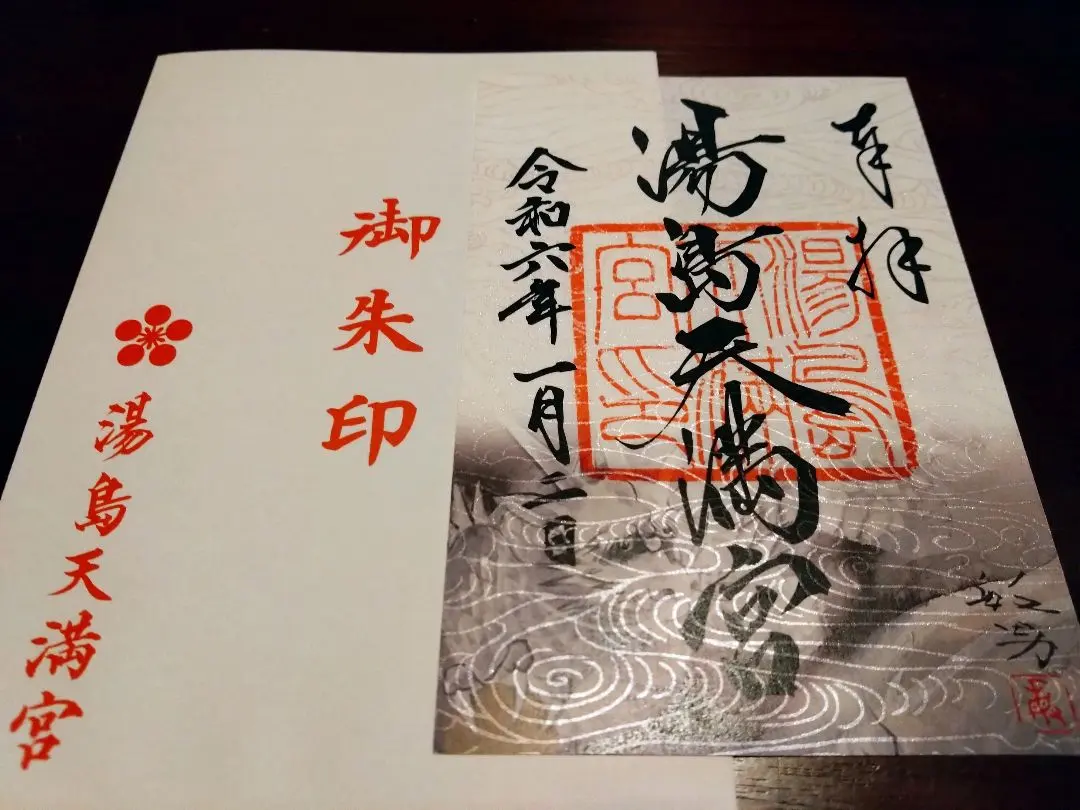 奉拝
湯島天満宮
湯島天満宮印
令和六年一月二日
御朱印
湯島天満宮